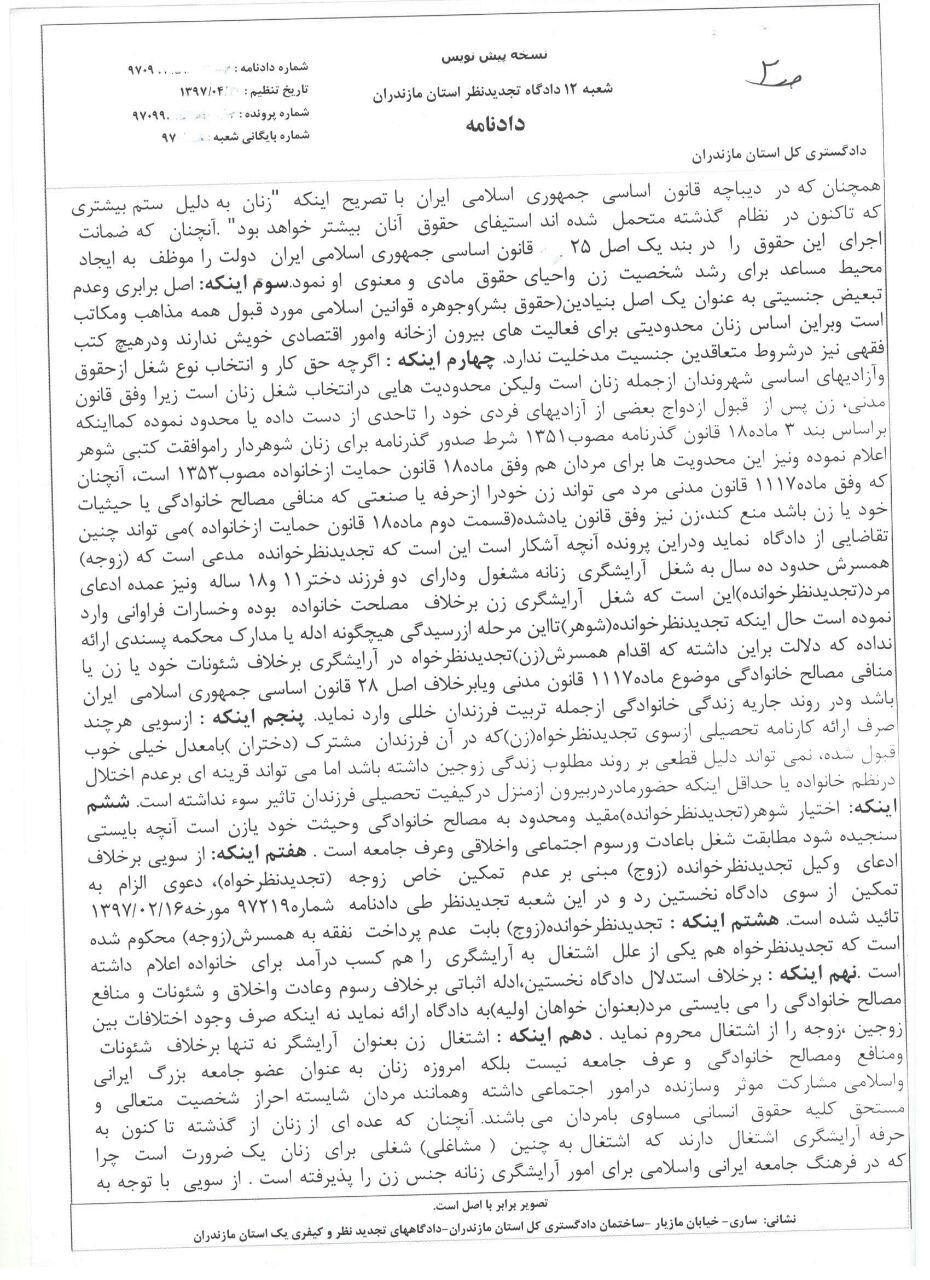 نسخه پیش نویس
ص ۲
شماره دادنامه : ۹۷۰۹
شعبه ۱۲ دادگاه تجدیدنظر استان مازندران
تاریخ تنظیم : ۱۳۹۷/۰۴/
دادنامه
شماره پرونده : ۹۷۰۹۹
شماره بایگانی شعبه : ۹۷
دادگستری کل استان مازندران
همچنان که در دیباچه قانون اساسی جمهوری اسلامی ایران با تصریح اینکه "زنان به دلیل ستم بیشتری
که تاکنون در نظام گذشته متحمل شده اند استیفای حقوق آنان بیشتر خواهد بود" .آنچنان که ضمانت
اجرای این حقوق را در بند یک اصل ۲۵ قانون اساسی جمهوری اسلامی ایران دولت را موظف به ایجاد
محیط مساعد برای رشد شخصیت زن واحیای حقوق مادی و معنوی او نمود.سوم اینکه: اصل برابری وعدم
تبعیض جنسیتی به عنوان یک اصل بنیادین(حقوق بشر)وجوهره قوانین اسلامی مورد قبول همه مذاهب ومکاتب
است وبراین اساس زنان محدودیتی برای فعالیت های بیرون ازخانه وامور اقتصادی خویش ندارند ودرهیچ کتب
فقهی نیز درشروط متعاقدین جنسیت مدخلیت ندارد. چهارم اینکه : اگرچه حق کار و انتخاب نوع شغل ازحقوق
وآزادیهای اساسی شهروندان ازجمله زنان است ولیکن محدودیت هایی درانتخاب شغل زنان است زیرا وفق قانون
مدنی، زن پس از قبول ازدواج بعضی از آزادیهای فردی خود را تاحدی از دست داده یا محدود نموده کمااینکه
براساس بند ۳ ماده۱۸ قانون گذرنامه مصوب۱۳۵۱ شرط صدور گذرنامه برای زنان شوهردار راموافقت کتبی شوهر
اعلام نموده ونیز این محدویت ها برای مردان هم وفق ماده۱۸ قانون حمایت ازخانواده مصوب۱۳۵۳ است، آنچنان
که وفق ماده۱۱۱۷ قانون مدنی مرد می تواند زن خودرا ازحرفه یا صنعتی که منافی مصالح خانوادگی یا حیثیات
خود یا زن باشد منع کند،زن نیز وفق قانون یادشده(قسمت دوم ماده۱۸ قانون حمایت ازخانواده )می تواند چنین
تقاضایی از دادگاه نماید ودراین پرونده آنچه آشکار است این است که تجدیدنظرخوانده مدعی است که (زوجه)
همسرش حدود ده سال به شغل آرایشگری زنانه مشغول ودارای دو فرزند دختر۱۱ و۱۸ ساله ونیز عمده ادعای
مرد(تجدیدنظرخوانده)این است که شغل آرایشگری زن برخلاف مصلحت خانواده بوده وخسارات فراوانی وارد
نموده است حال اینکه تجدیدنظرخوانده(شوهر)تااین مرحله ازرسیدگی هیچگونه ادله یا مدارک محکمه پسندی ارائه
نداده که دلالت براین داشته که اقدام همسرش(زن)تجدیدنظرخواه در آرایشگری برخلاف شئونات خود یا زن یا
منافی مصالح خانوادگی موضوع ماده۱۱۱۷ قانون مدنی ویابرخلاف اصل ۲۸ قانون اساسی جمهوری اسلامی ایران
باشد ودر روند جاریه زندگی خانوادگی ازجمله تربیت فرزندان خللی وارد نماید. پنجم اینکه : ازسویی هرچند
صرف ارائه کارنامه تحصیلی ازسوی تجدیدنظرخواه(زن)که در آن فرزندان مشترک (دختران )بامعدل خیلی خوب
قبول شده، نمی تواند دلیل قطعی بر روند مطلوب زندگی زوجین داشته باشد اما می تواند قرینه ای برعدم اختلال
درنظم خانواده یا حداقل اینکه حضورمادردربیرون ازمنزل درکیفیت تحصیلی فرزندان تاثیر سوء نداشته است. ششم
اینکه: اختیار شوهر(تجدیدنظرخوانده)مقید ومحدود به مصالح خانوادگی وحیثت خود یازن است آنچه بایستی
سنجیده شود مطابقت شغل باعادت ورسوم اجتماعی واخلاقی وعرف جامعه است . هفتم اینکه: از سویی برخلاف
ادعای وکیل تجدیدنظرخوانده (زوج) مبنی بر عدم تمکین خاص زوجه (تجدیدنظرخواه)، دعوی الزام به
تمکین از سوی دادگاه نخستین رد و در این شعبه تجدیدنظر طی دادنامه شماره۹۷۲۱۹ مورخه۱۳۹۷/۰۲/۱۶
تائید شده است. هشتم اینکه : تجدیدنظرخوانده(زوج) بابت عدم پرداخت نفقه به همسرش(زوجه) محکوم شده
است که تجدیدنظرخواه هم یکی از علل اشتغال به آرایشگری را هم کسب درآمد برای خانواده اعلام داشته
است .نهم اینکه : برخلاف استدلال دادگاه نخستین،ادله اثباتی برخلاف رسوم وعادت واخلاق و شئونات و منافع
مصالح خانوادگی را می بایستی مرد(بعنوان خواهان اولیه)به دادگاه ارائه نماید نه اینکه صرف وجود اختلافات بین
زوجین ،زوجه را از اشتغال محروم نماید . دهم اینکه : اشتغال زن بعنوان آرایشگر نه تنها برخلاف شئونات
ومنافع ومصالح خانوادگی و عرف جامعه نیست بلکه امروزه زنان به عنوان عضو جامعه بزرگ ایرانی
واسلامی مشارکت موثر وسازنده درامور اجتماعی داشته وهمانند مردان شایسته احراز شخصیت متعالی و
مستحق کلیه حقوق انسانی مساوی بامردان می باشند. آنچنان که عده ای از زنان از گذشته تاکنون به
حرفه آرایشگری اشتغال دارند که اشتغال به چنین ( مشاغلی) شغلی برای زنان یک ضرورت است چرا
که در فرهنگ جامعه ایرانی واسلامی برای امور آرایشگری زنانه جنس زن را پذیرفته است . از سویی با توجه به
تصویر برابر با اصل است.
نشانی: ساری- خیابان مازیار -ساختمان دادگستری کل استان مازندران-دادگاههای تجدید نظر و کیفری یک استان مازندران